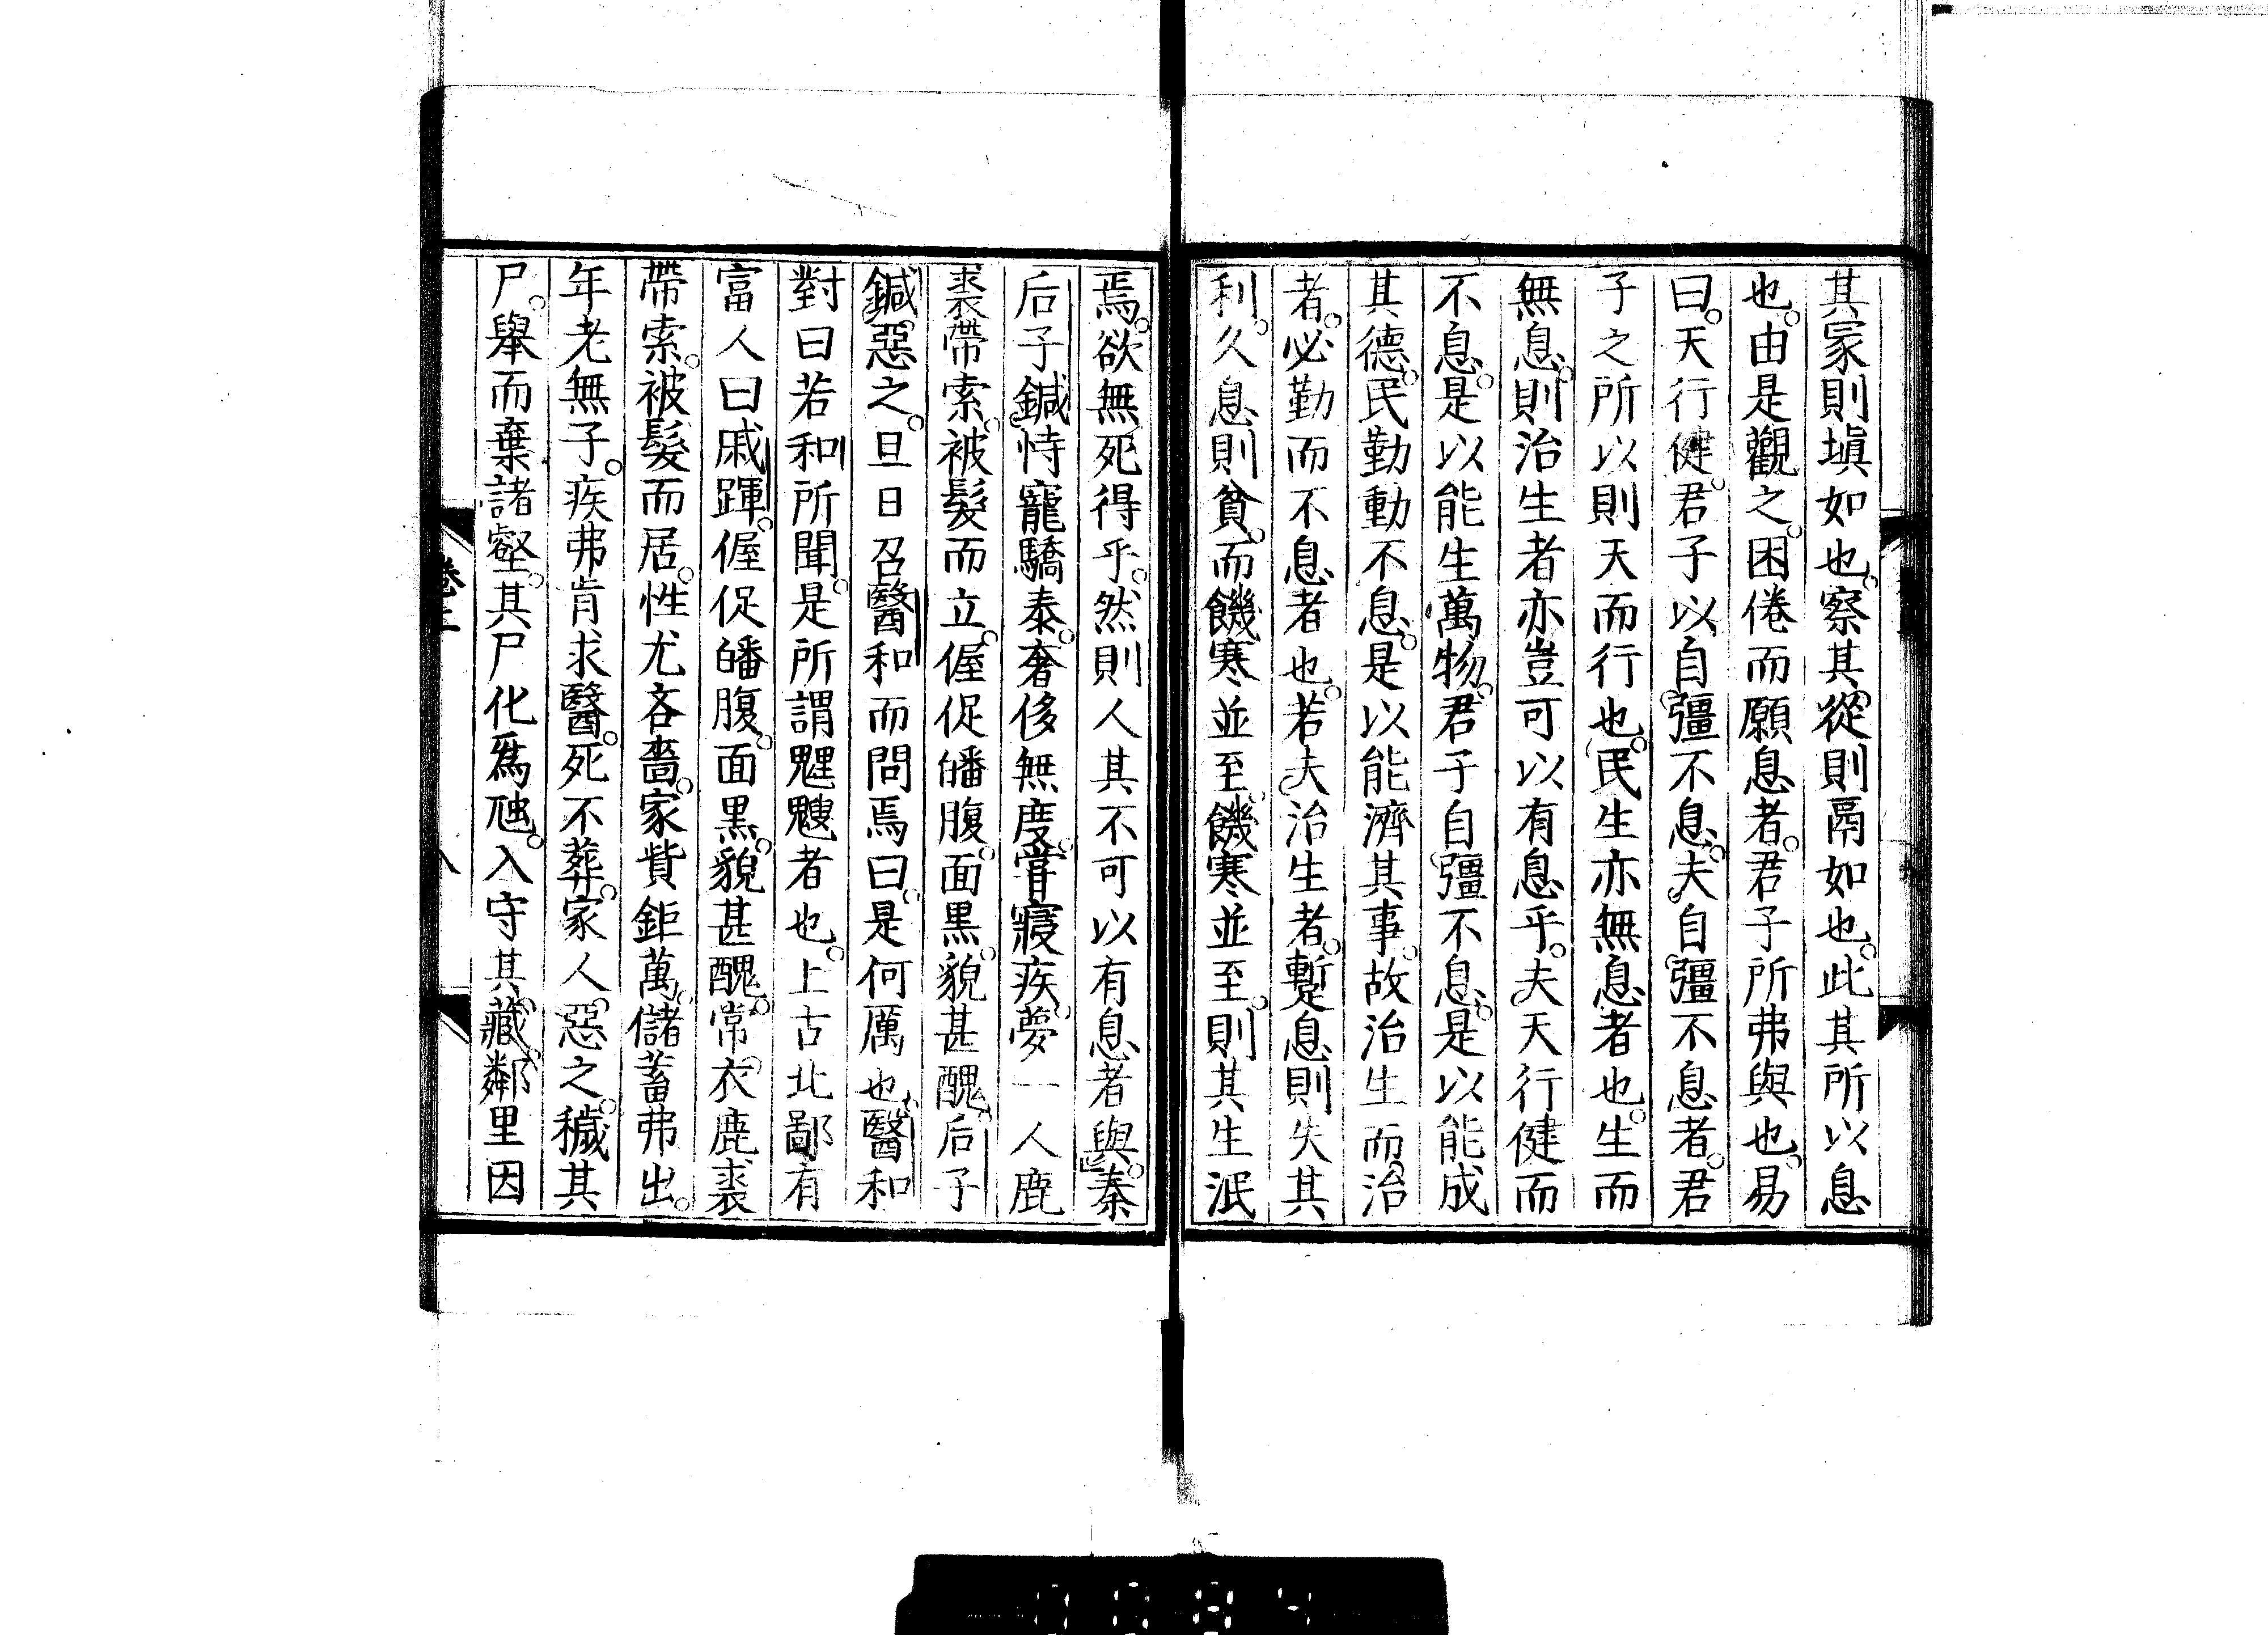 其冢則塡如也。察其從則鬲如也。此其所以息
也。由是觀之。困倦而願息者。君子所弗與也。易
曰。天行健。君子以自彊不息。夫自彊不息者。君
子之所以則天而行也。民生亦無息者也。生而
無息。則治生者亦豈可以有息乎。夫天行健而
不息。是以能生萬物。君子自彊不息。是以能成
其德。民勤動不息。是以能濟其事。故治生而治
者。必勤而不息者也。若夫治生者。蹔息則失其
利。久息則貧。而饑寒並至。饑寒並至。則其生泯
焉。欲無死得乎。然則人其不可以有息者與。秦
后子鍼恃寵驕泰。奢侈無度。嘗寢疾。夢一人鹿
裘帶索。被髮而立。偓促皤腹。面黒。貌甚醜。后子
鍼惡之。旦日召醫和而問焉曰。是何厲也。醫和
對曰若和所聞。是所謂魁者也。上古北鄙有
富人曰戚䠪。偓促皤腹。面黒。貌甚醜。常衣鹿裘
帶索。被髮而居。性尤吝嗇。家貲鉅萬。儲蓄弗出。
年老無子。疾弗肯求醫。死不葬。家人惡之。穢其
尸。舉而棄諸壑。其尸化爲。入守其藏。鄰里因
卷三
八